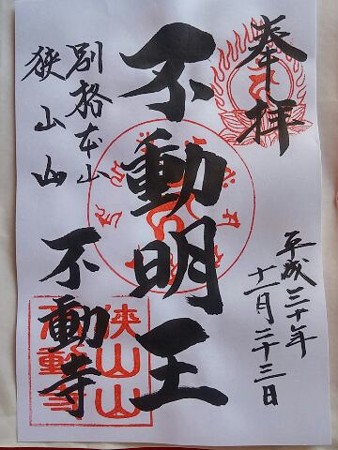 奉拝
平成三十年
十一月二十三日
不動明王
別格本山
狭山山
不動寺
狭山山
不動寺